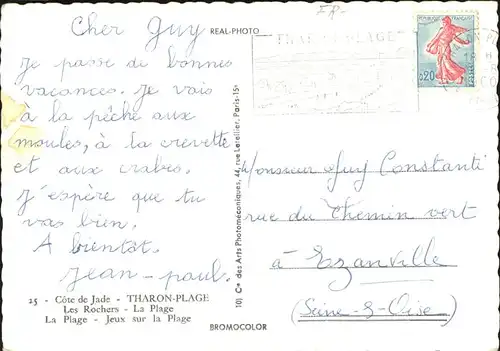 FR-
Cher Guy
REAL-PHOTO
Je passe de bonnes
vacances. Je vais
à la pêche aux
moules, à la crevette
et aux crabes.
J'espère que tu
vas bien.
A bientôt.
Jean-paul.
25 - Côte de Jade - THARON-PLAGE
Les Rochers - La Plage
La Plage - Jeux sur la Plage
10) Cie des Arts Photomécaniques, 44, rue Letellier, Paris-15e
BROMOCOLOR
THARON-PLAGE
REPUBLIQUE FRANÇAISE
0,20
POSTES
Monsieur Guy Constanté
rue du Chemin vert
à Ezanville
(Seine-&-Oise)